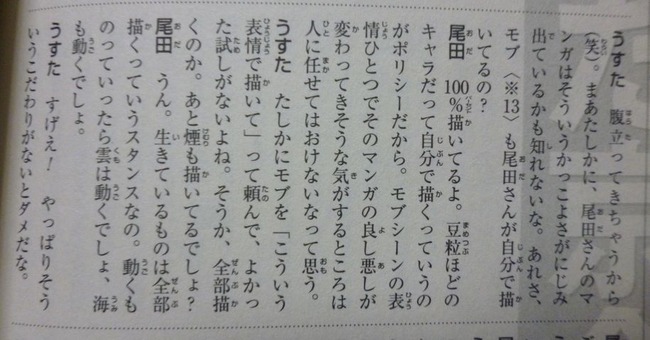 うすた　腹立ってきちゃうから
（笑）。まあたしかに、尾田さんのマ
ンガはそういうかっこよさがにじみ
出ているかも知れないな。あれさ、
モブ〈※13〉も尾田さんが自分で描
いてるの？
尾田　100％描いてるよ。豆粒ほどの
キャラだって自分で描くっていうの
がポリシーだから。モブシーンの表
情ひとつでそのマンガの良し悪しが
変わってきそうな気がするところは
人に任せてはおけないなって思う。
うすた　たしかにモブを「こういう
表情で描いて」って頼んで、よかっ
た試しがないよね。そうか、全部描
くのか。あと煙も描いてるでしょ？
尾田　うん。生きているものは全部
描くっていうスタンスなの。動くも
のっていったら雲は動くでしょ、海
も動くでしょ。
うすた　すげえ！　やっぱりそう
いうこだわりがないとダメだな。